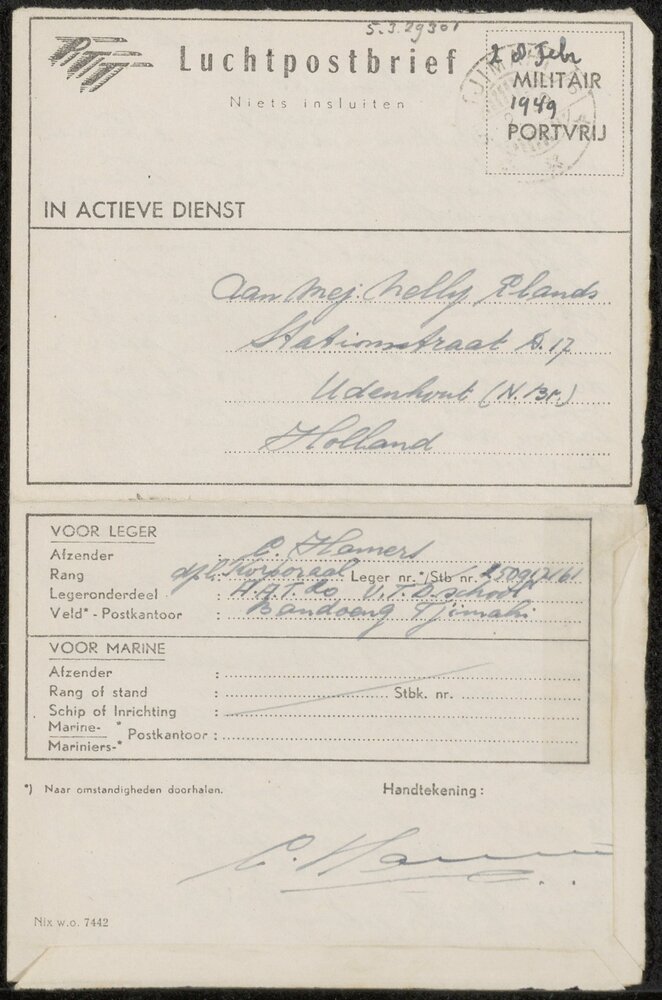 5.3.29301
PTT
Luchtpostbrief
Niets insluiten
2 Febr
MILITAIR
1949
PORTVRIJ
IN ACTIEVE DIENST
Aan Mej. Nelly Plands
Stationstraat D.17
Udenhout (N.Br.)
Holland
VOOR LEGER
Afzender : C. Hamers
Rang : dpl. Korporaal Leger nr.*/Stb nr.
Legeronderdeel : A.A.T. V.T.O. school
Veld* - Postkantoor : Bandoeng Tjimahi
VOOR MARINE
Afzender :
Rang of stand : Stbk. nr.
Schip of Inrichting :
Marine- *
Mariniers-* Postkantoor :
*) Naar omstandigheden doorhalen. Handtekening:
C. Hamers
Nix w.o. 7442